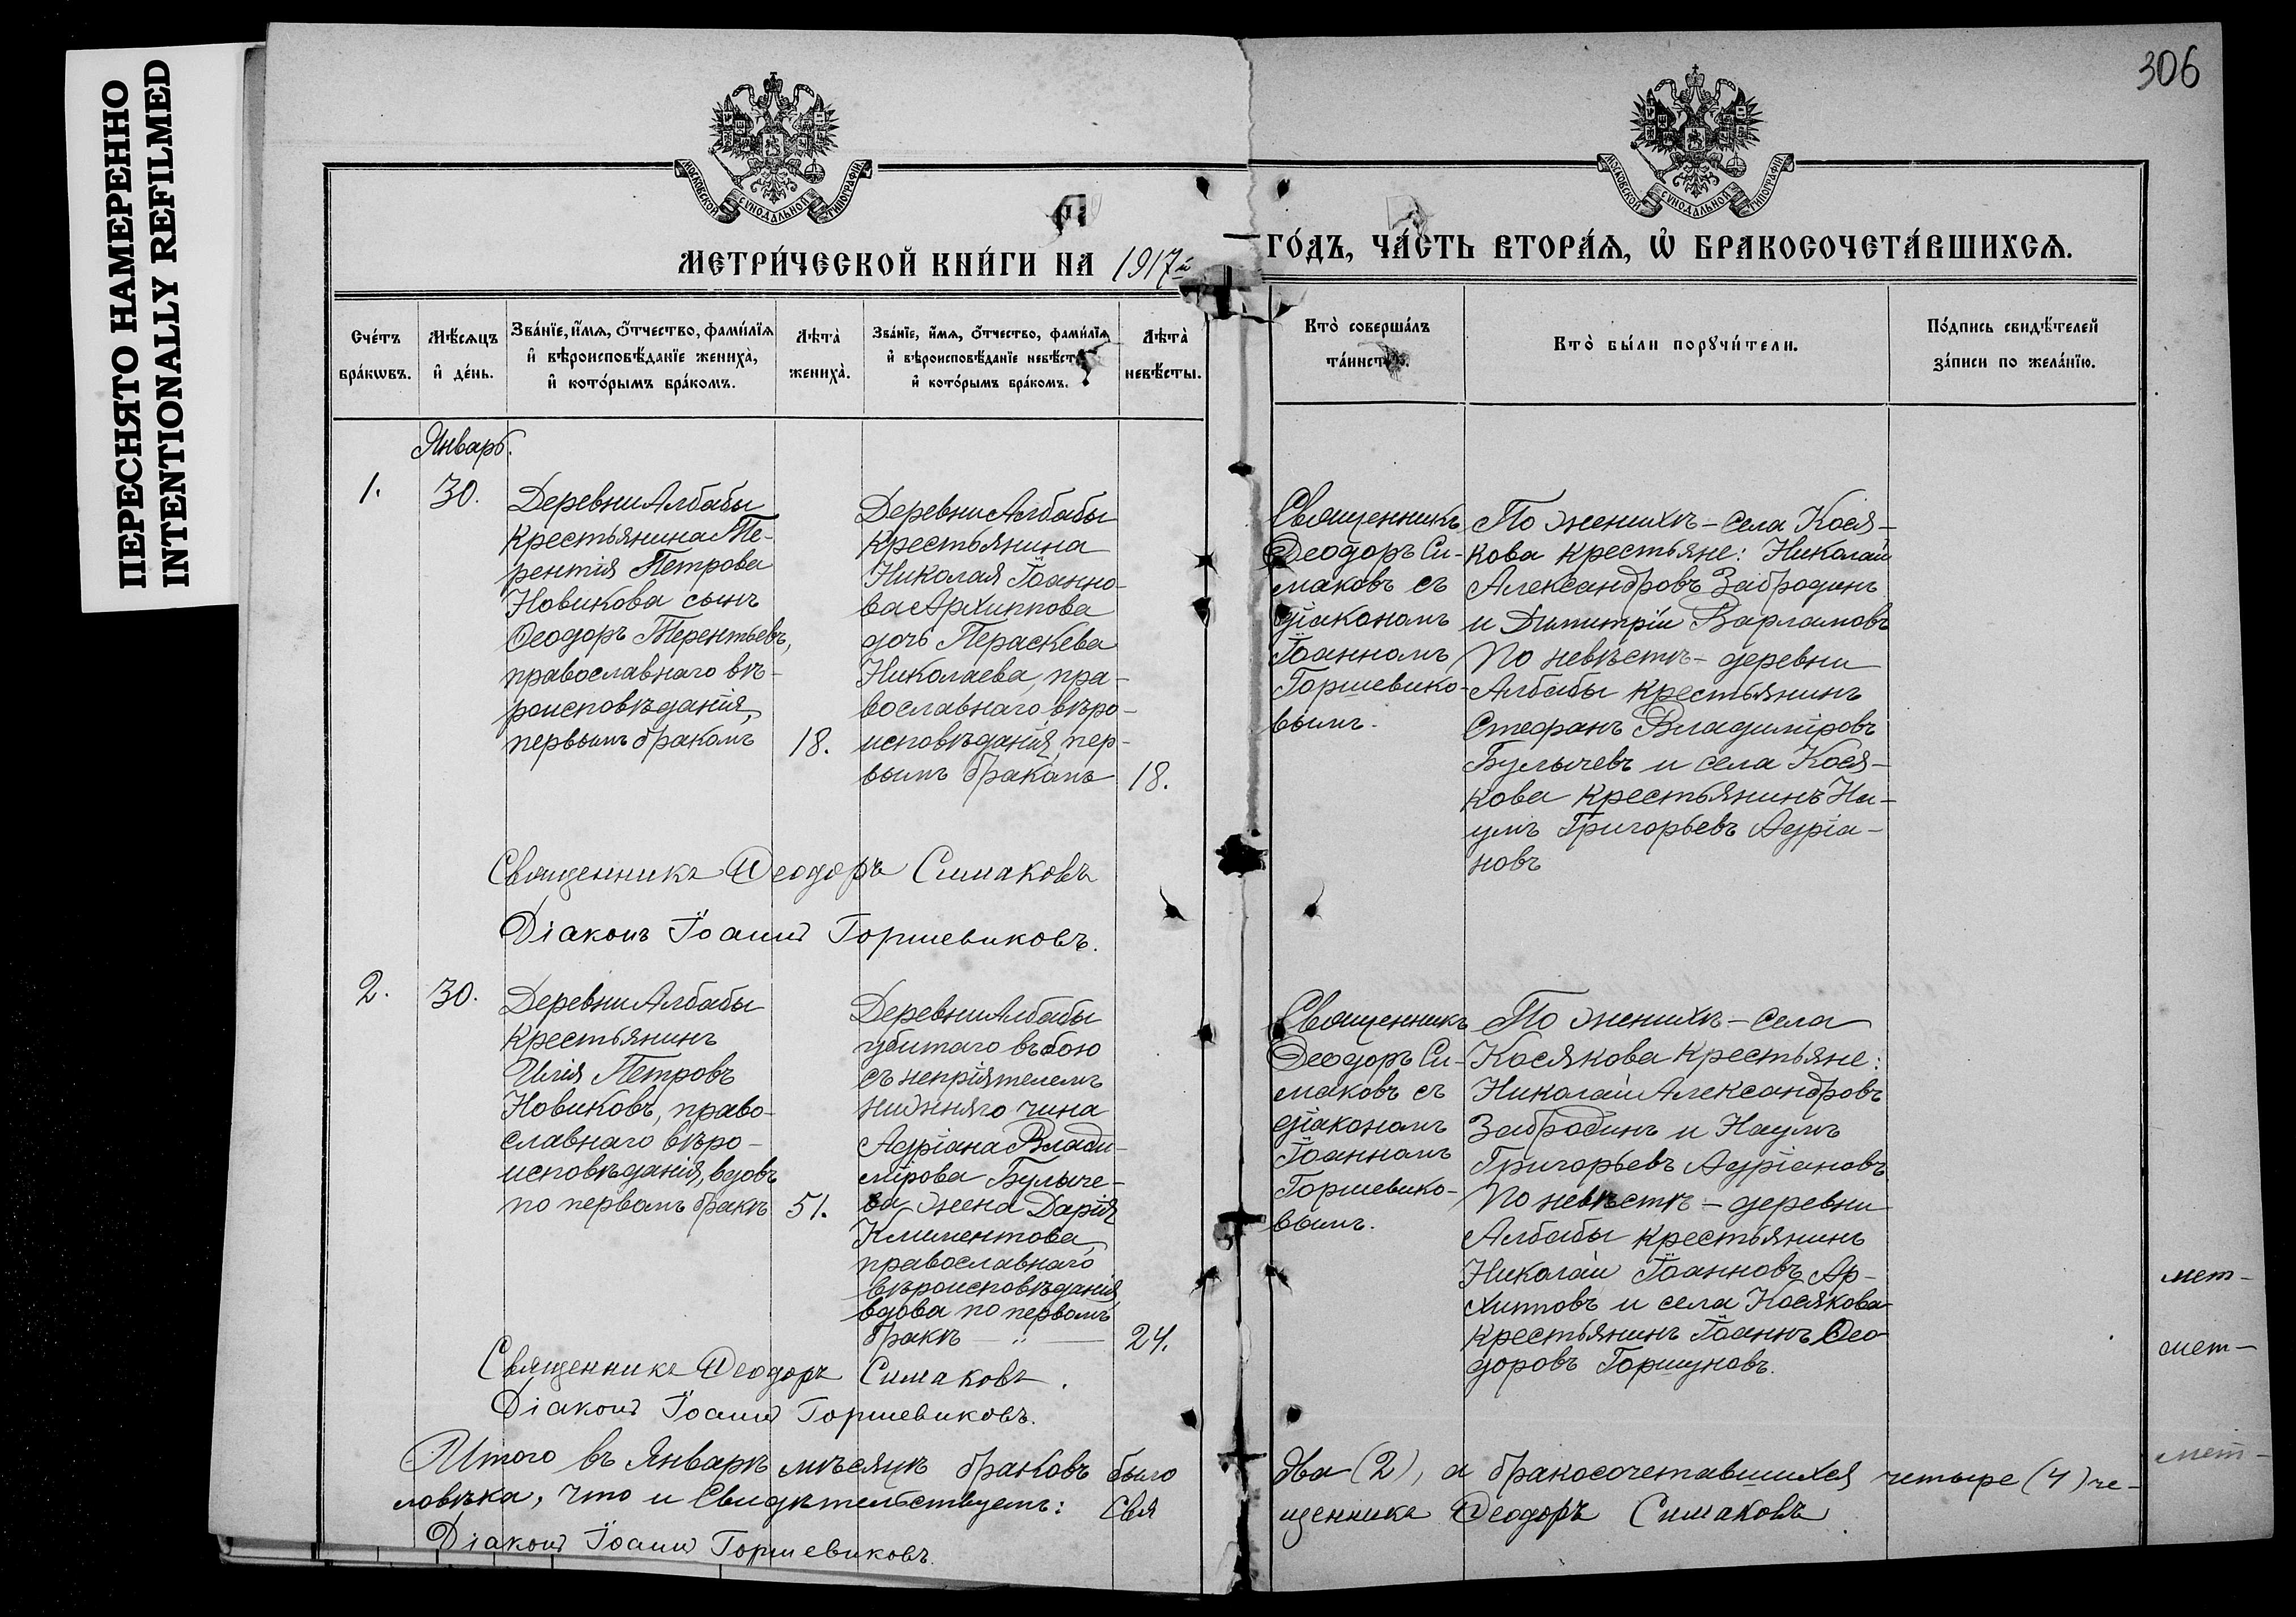 ПЕРЕСНЯТО НАМЕРЕННО
INTENTIONALLY REFILMED
306
МОСКОВСКОЙ СУНОДАЛЬНОЙ ТИПОГРАФІИ
МОСКОВСКОЙ СУНОДАЛЬНОЙ ТИПОГРАФІИ
МЕТРИ́ЧЕСКОЙ КНИ́ГИ НА 1917й
ГО́ДЪ, ЧА́СТЬ ВТОРА́Ѧ, Ѽ БРАКОСОЧЕТА́ВШИХСѦ.
Сче́тъ
бра́кѡвъ.
Мѣ́сѧцъ
и҆ де́нь.
Зва́нїе, и҆́мѧ, ѻ҆́тчество, фами́лїѧ
и҆ вѣроисповѣ́данїе жениха̀,
и҆ кото́рымъ бра́комъ.
Лѣта̀
жениха̀.
Зва́нїе, и҆́мѧ, ѻ҆́тчество, фами́лїѧ
и҆ вѣроисповѣ́данїе невѣ́сты
и҆ кото́рымъ бра́комъ.
Лѣта̀
невѣ́сты.
Кто̀ соверша́лъ
та́инство.
Кто̀ бы́ли порꙋчи́тели.
По́дпись свидѣ́телей
за́писи по жела́нїю.
Январь.
1.
30.
Деревни Албабы
крестьянина Те-
рентія Петрова
Новикова сынъ
Ѳеодоръ Терентьевъ,
православнаго вѣ-
роисповѣданія,
первымъ бракомъ
18.
Деревни Албабы
крестьянина
Николая Іоанно-
ва Архиппова
дочь Параскева
Николаева, пра-
вославнаго вѣро-
исповѣданія, пер-
вымъ бракомъ
18.
Священникъ
Ѳеодоръ Си-
маковъ съ
діакономъ
Іоанномъ
Горшевико-
вымъ.
По женихѣ - села Кося-
кова крестьяне: Николай
Александровъ Забродинъ
и Димитрій Варламовъ
По невѣстѣ - деревни
Албабы крестьянинъ
Стефанъ Владиміровъ
Булычевъ и села Кося-
кова крестьянинъ На-
умъ Григорьевъ Адріа-
новъ
Священникъ Ѳеодоръ Симаковъ
Діаконъ Іоаннъ Горшевиковъ.
2.
30.
Деревни Албабы
крестьянинъ
Илія Петровъ
Новиковъ, право-
славнаго вѣро-
исповѣданія, вдовъ
по первомъ бракѣ
51.
Деревни Албабы
убитаго въ бою
съ непріятелемъ
нижняго чина
Адріана Влади-
мірова Булыче-
ва жена Дарія
Климентова,
православнаго
вѣроисповѣданія
вдова по первомъ
бракѣ — „ —
24.
Священникъ
Ѳеодоръ Си-
маковъ съ
діакономъ
Іоанномъ
Горшевико-
вымъ.
По женихѣ - села
Косякова крестьяне:
Николай Александровъ
Забродинъ и Наумъ
Григорьевъ Адріановъ
По невѣстѣ - деревни
Албабы крестьянинъ
Николай Іоанновъ Ар-
хипповъ и села Косякова
крестьянинъ Іоаннъ Ѳео-
доровъ Горшуновъ.
Священникъ Ѳеодоръ Симаковъ.
Діаконъ Іоаннъ Горшевиковъ.
мет-
мет-
мет-
Итого въ Январѣ мѣсяцѣ браковъ было два (2), а бракосочетавшихся четыре (4) че-
ловѣка, что и свидѣтельствуемъ: Священникъ Ѳеодоръ Симаковъ
Діаконъ Іоаннъ Горшевиковъ.